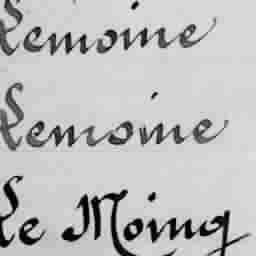 Lemoine
Lemoine
Le Moing